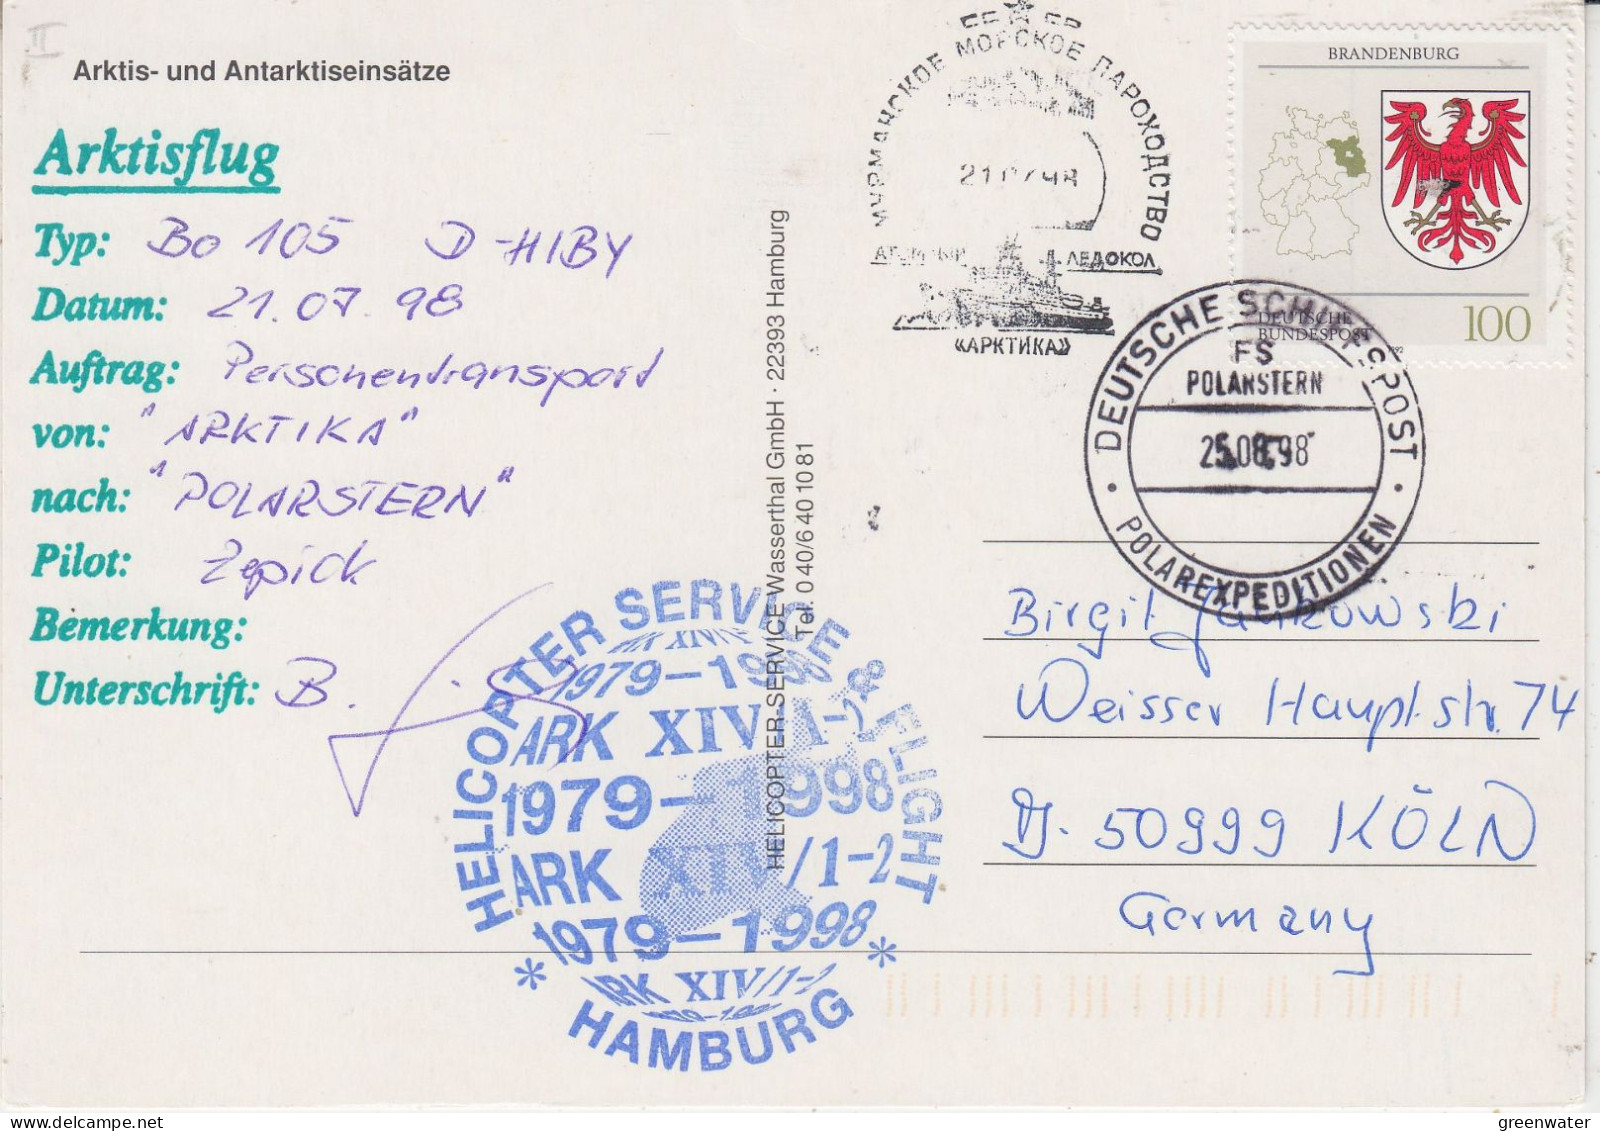 II
Arktis- und Antarktiseinsätze
Arktisflug
Typ: Bo 105 D-HIBY
Datum: 21.07.98
Auftrag: Personentransport
von: "ARKTIKA"
nach: "POLARSTERN"
Pilot: Zepick
Bemerkung:
Unterschrift: B.
HELICOPTER SERVICE & FLIGHT
1979-1998
ARK XIV/1-2
1979-1998
ARK XIV/1-2
1979-1998
ARK XIV/1-2
* HAMBURG *
HELICOPTER-SERVICE Wasserthal GmbH · 22393 Hamburg
Tel. 0 40/6 40 10 81
МУРМАНСКОЕ МОРСКОЕ ПАРОХОДСТВО
21 07 98
АТОМНЫЙ ЛЕДОКОЛ
«АРКТИКА»
BRANDENBURG
DEUTSCHE
BUNDESPOST
1992
100
DEUTSCHE SCHIFFSPOST
FS
POLARSTERN
25.08.98
· POLAREXPEDITIONEN ·
Birgit Jankowski
Weisser Hauptstr. 74
D-50999 KÖLN
Germany
greenwater